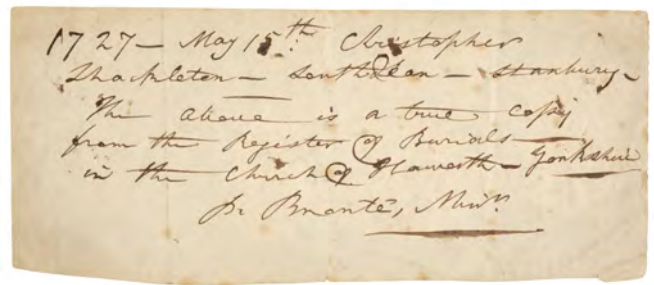 1727 — May 15th. Christopher
Shackleton — South Dean — Stanbury —
The above is a true copy
from the Register of Burials
in the Church of Haworth — Yorkshire
P. Brontë, Minr.